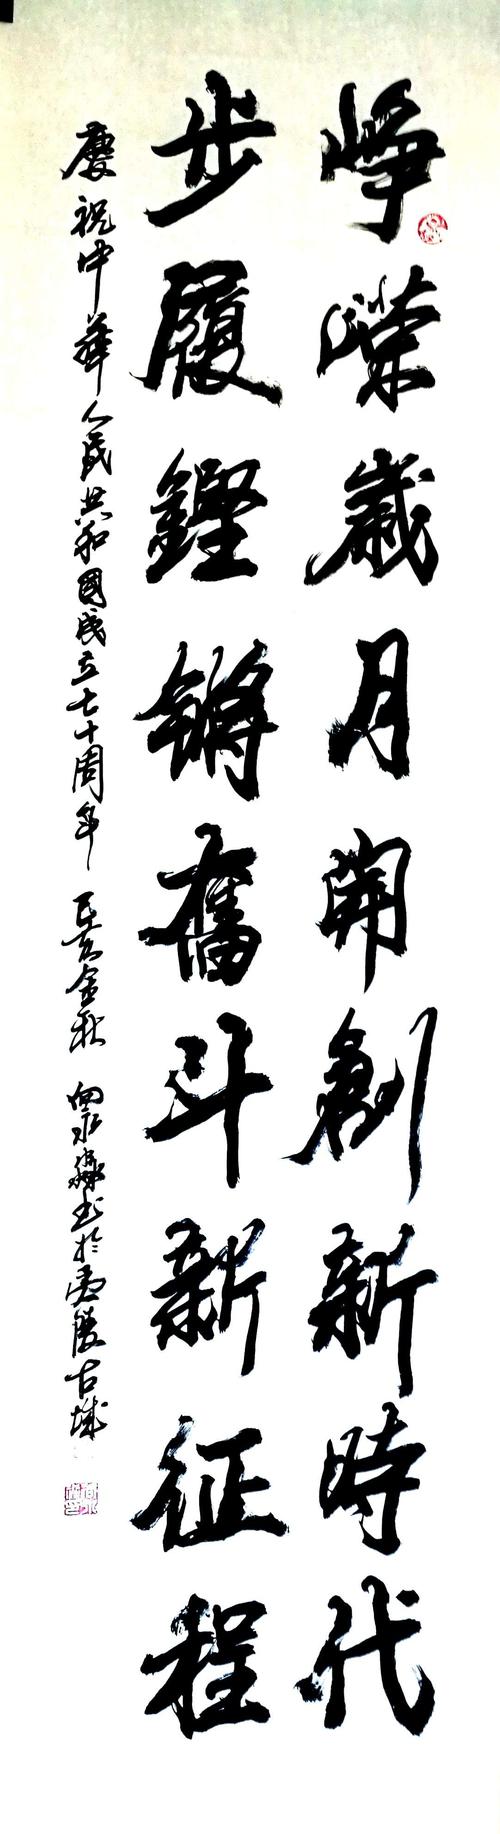 崢嶸歲月開創新時代
步履鏗鏘奮斗新征程
慶祝中華人民共和國成立七十周年 己亥金秋 書於 古城